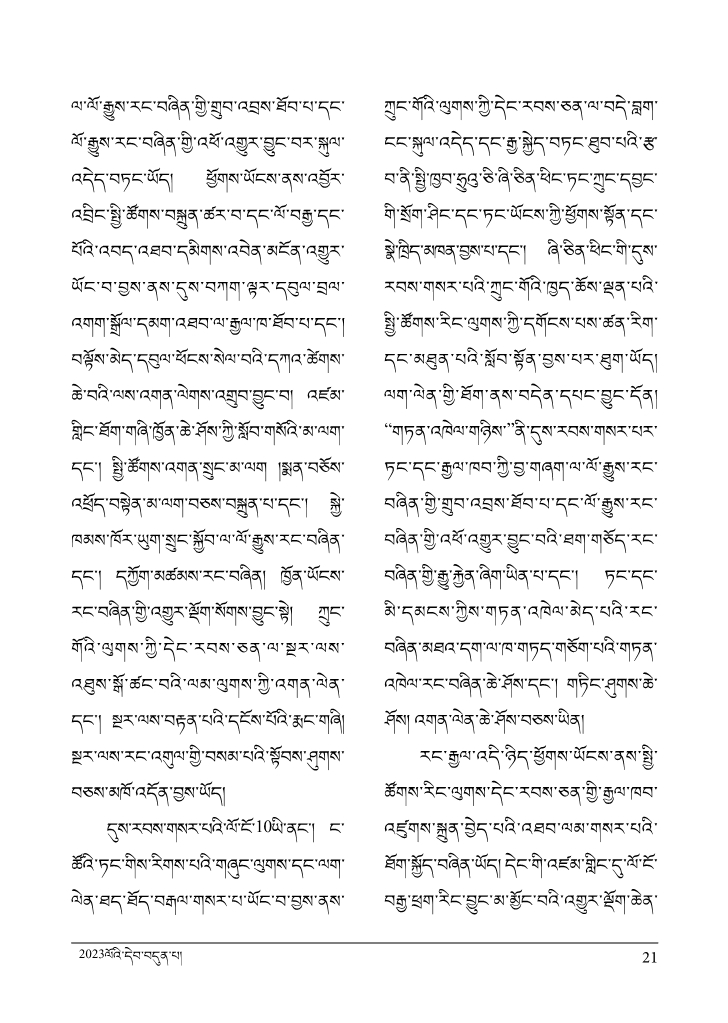 ལ་ལོ་རྒྱུས་རང་བཞིན་གྱི་གྲུབ་འབྲས་ཐོབ་པ་དང་
ལོ་རྒྱུས་རང་བཞིན་གྱི་འཕོ་འགྱུར་བྱུང་བར་སྐུལ་
འདེད་བཏང་ཡོད། ཕྱོགས་ཡོངས་ནས་འབྱོར་
འབྲིང་སྤྱི་ཚོགས་བསྐྲུན་ཚར་བ་དང་ལོ་བརྒྱ་དང་
པོའི་འབད་འཐབ་དམིགས་འབེན་མངོན་འགྱུར་
ཡོང་བ་བྱས་ནས་དུས་བཀག་ལྟར་དབུལ་བྲལ་
འགག་སྒྲོལ་དམག་འཐབ་ལ་རྒྱལ་ཁ་ཐོབ་པ་དང་།
བལྟོས་མེད་དབུལ་ཕོངས་སེལ་བའི་དཀའ་ཚེགས་
ཆེ་བའི་ལས་འགན་ལེགས་འགྲུབ་བྱུང་བ། འཛམ་
གླིང་ཐོག་གཞི་ཁྱོན་ཆེ་ཤོས་ཀྱི་སློབ་གསོའི་མ་ལག་
དང་། སྤྱི་ཚོགས་འགན་སྲུང་མ་ལག །སྨན་བཅོས་
འཕྲོད་བསྟེན་མ་ལག་བཅས་བསྐྲུན་པ་དང་། སྐྱེ་
ཁམས་ཁོར་ཡུག་སྲུང་སྐྱོབ་ལ་ལོ་རྒྱུས་རང་བཞིན་
དང་། དཀྱོག་མཚམས་རང་བཞིན། ཁྱོན་ཡོངས་
རང་བཞིན་གྱི་འགྱུར་ལྡོག་སོགས་བྱུང་སྟེ། ཀྲུང་
གོའི་ལུགས་ཀྱི་དེང་རབས་ཅན་ལ་སྔར་ལས་
འཐུས་སྒོ་ཚང་བའི་ལམ་ལུགས་ཀྱི་འགན་ལེན་
དང་། སྔར་ལས་བརྟན་པའི་དངོས་པོའི་རྨང་གཞི།
སྔར་ལས་རང་འགུལ་གྱི་བསམ་པའི་སྟོབས་ཤུགས་
བཅས་མཁོ་འདོན་བྱས་ཡོད།
དུས་རབས་གསར་པའི་ལོ་ངོ་10ཡི་ནང་། ང་
ཚོའི་ཏང་གིས་རིགས་པའི་གཞུང་ལུགས་དང་ལག་
ལེན་ཐད་ཐོད་བརྒལ་གསར་པ་ཡོང་བ་བྱས་ནས་
ཀྲུང་གོའི་ལུགས་ཀྱི་དེང་རབས་ཅན་ལ་བདེ་བླག་
ངང་སྐུལ་འདེད་དང་རྒྱ་སྐྱེད་བཏང་ཐུབ་པའི་རྩ་
བ་ནི་སྤྱི་ཁྱབ་ཧྲུའུ་ཅི་ཞི་ཅིན་ཕིང་ཏང་ཀྲུང་དབྱང་
གི་སྲོག་ཤིང་དང་ཏང་ཡོངས་ཀྱི་ཕྱོགས་སྟོན་དང་
སྣེ་ཁྲིད་མཁན་བྱས་པ་དང་། ཞི་ཅིན་ཕིང་གི་དུས་
རབས་གསར་པའི་ཀྲུང་གོའི་ཁྱད་ཆོས་ལྡན་པའི་
སྤྱི་ཚོགས་རིང་ལུགས་ཀྱི་དགོངས་པས་ཚན་རིག་
དང་མཐུན་པའི་སློབ་སྟོན་བྱས་པར་ཐུག་ཡོད།
ལག་ལེན་གྱི་ཐོག་ནས་བདེན་དཔང་བྱུང་དོན།
“གཏན་འཁེལ་གཉིས་”ནི་དུས་རབས་གསར་པར་
ཏང་དང་རྒྱལ་ཁབ་ཀྱི་བྱ་གཞག་ལ་ལོ་རྒྱུས་རང་
བཞིན་གྱི་གྲུབ་འབྲས་ཐོབ་པ་དང་ལོ་རྒྱུས་རང་
བཞིན་གྱི་འཕོ་འགྱུར་བྱུང་བའི་ཐག་གཅོད་རང་
བཞིན་གྱི་རྒྱུ་རྐྱེན་ཞིག་ཡིན་པ་དང་། ཏང་དང་
མི་དམངས་ཀྱིས་གཏན་འཁེལ་མེད་པའི་རང་
བཞིན་མཐའ་དག་ལ་ཁ་གཏད་གཅོག་པའི་གཏན་
འཁེལ་རང་བཞིན་ཆེ་ཤོས་དང་། གཏིང་ཤུགས་ཆེ་
ཤོས། འགན་ལེན་ཆེ་ཤོས་བཅས་ཡིན།
རང་རྒྱལ་འདི་ཉིད་ཕྱོགས་ཡོངས་ནས་སྤྱི་
ཚོགས་རིང་ལུགས་དེང་རབས་ཅན་གྱི་རྒྱལ་ཁབ་
འཛུགས་སྐྲུན་བྱེད་པའི་འཐབ་ལམ་གསར་པའི་
ཐོག་སྐྱོད་བཞིན་ཡོད། དེང་གི་འཛམ་གླིང་དུ་ལོ་ངོ་
བརྒྱ་ཕྲག་རིང་བྱུང་མ་མྱོང་བའི་འགྱུར་ལྡོག་ཆེན་
2023ལོའི་དེབ་བདུན་པ།
21